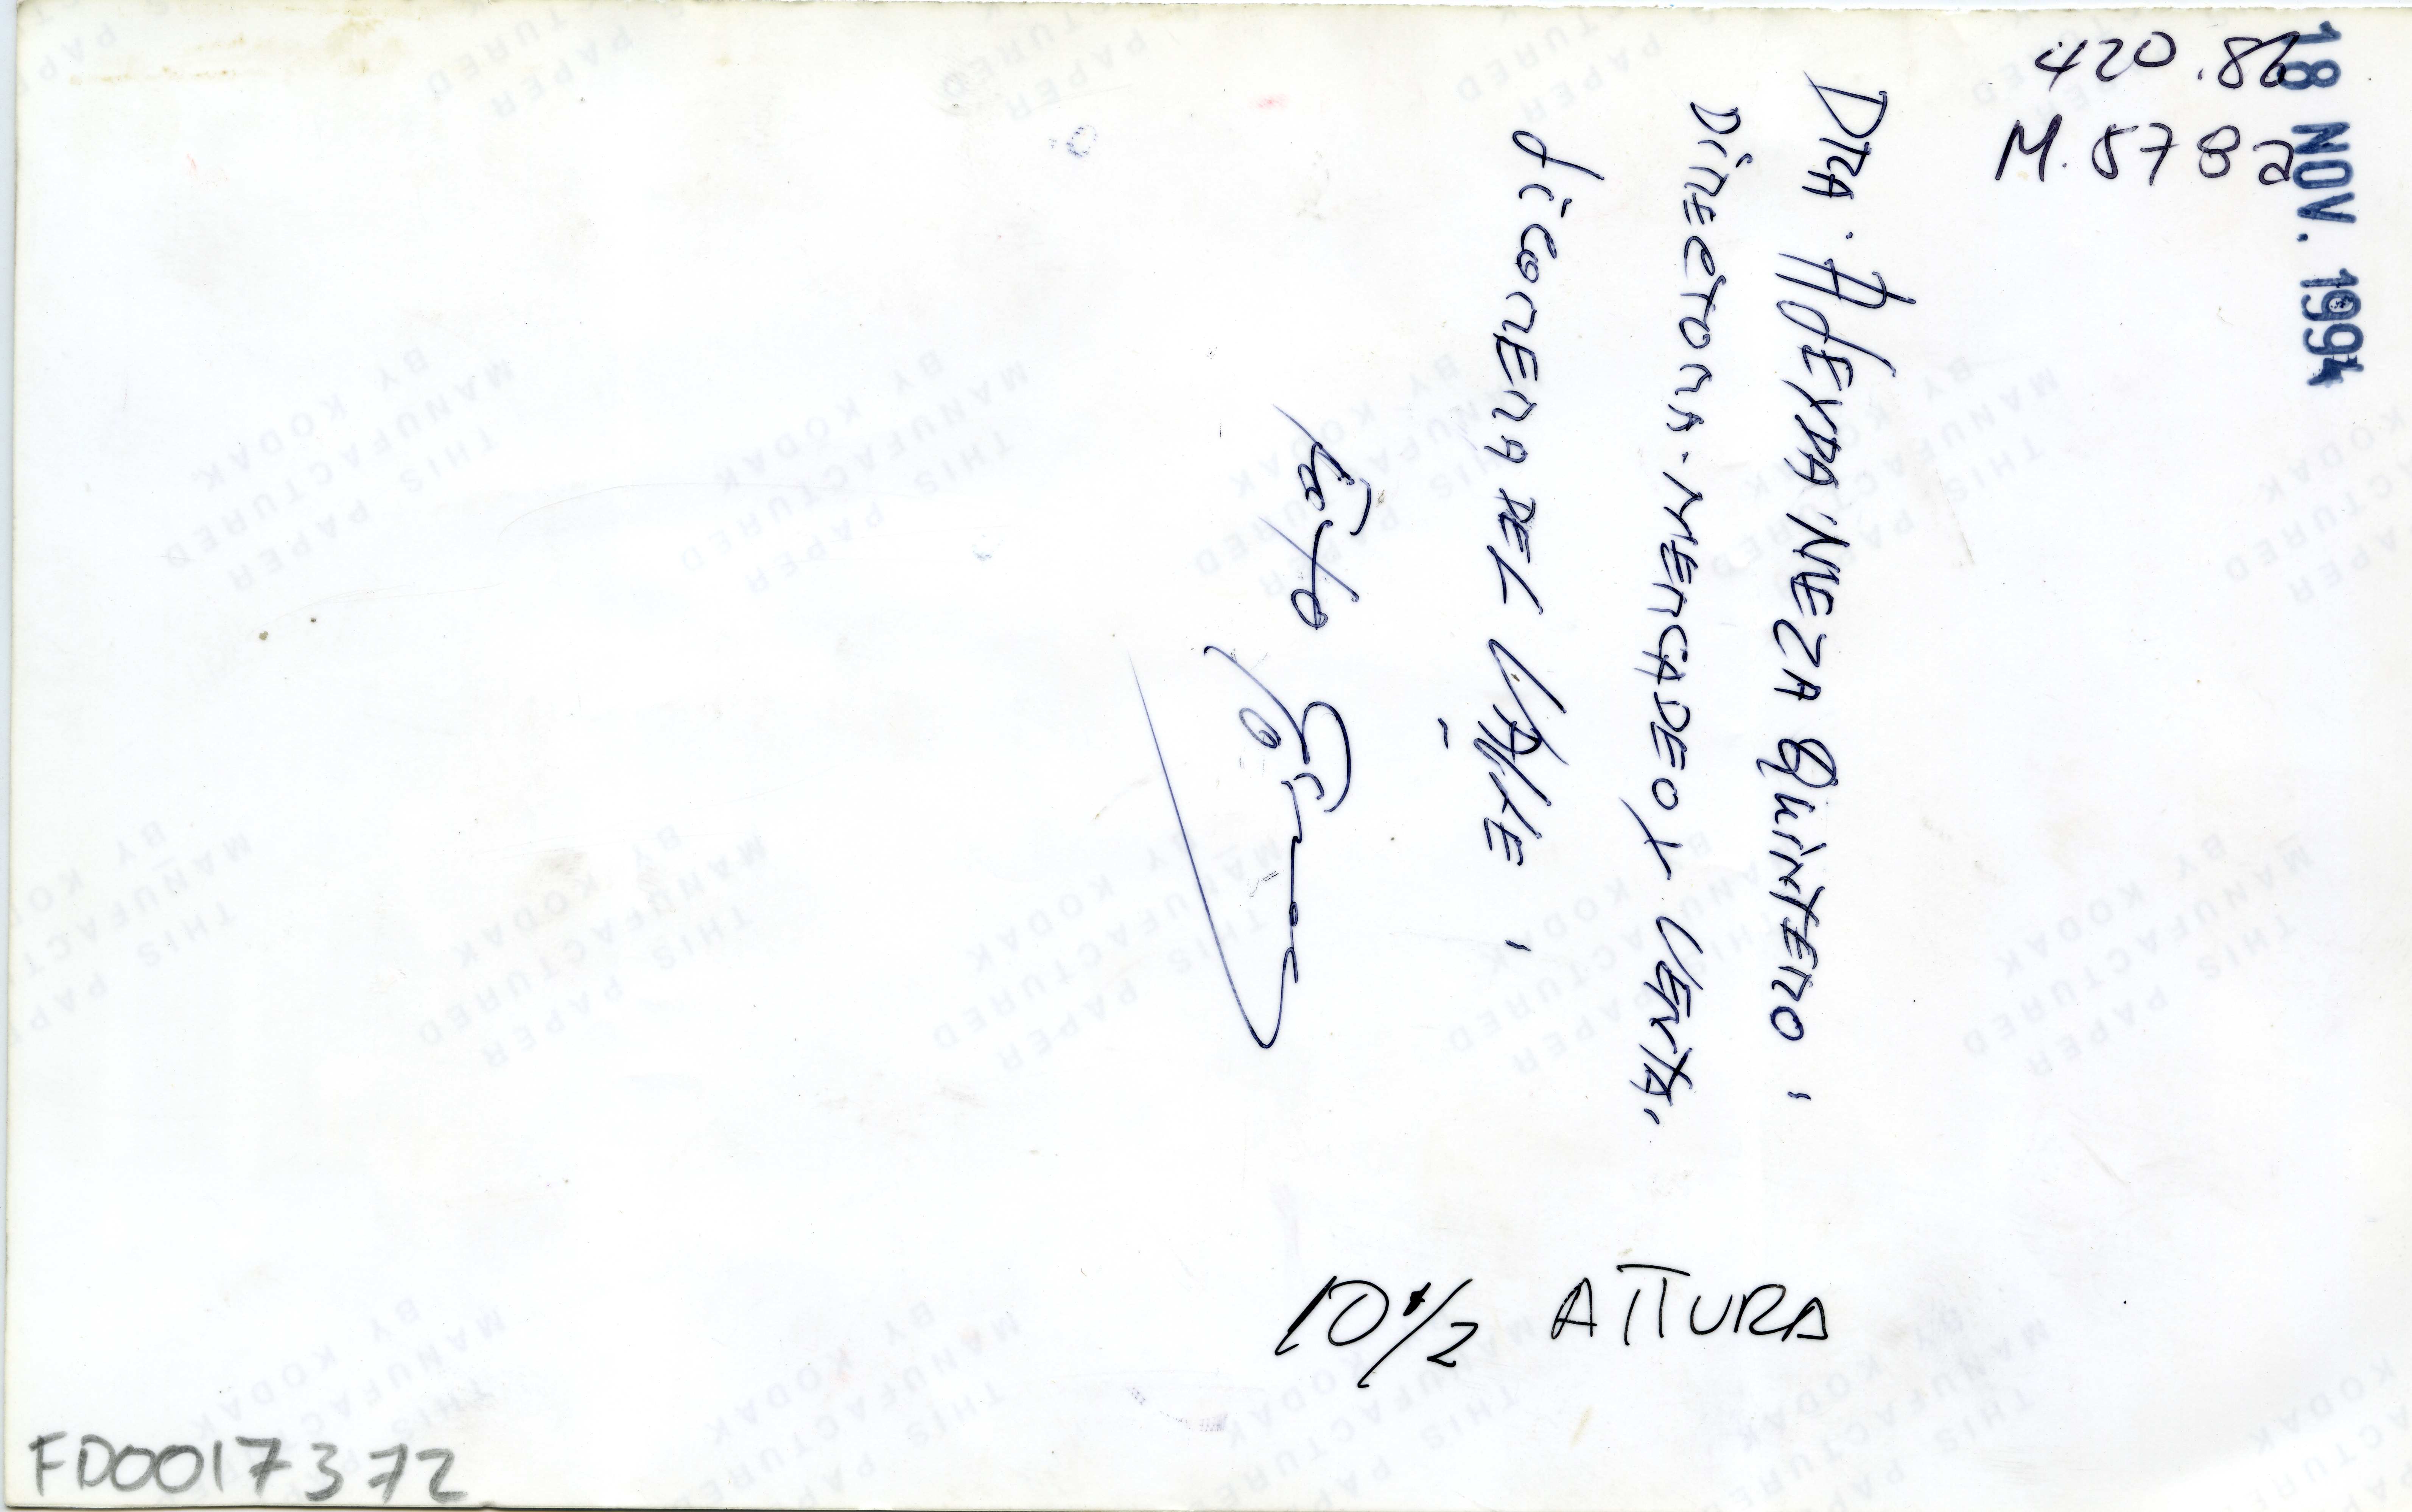 420.86
M.578a
18 NOV. 1994
DRA. AlEYDA MEZA QUiNTERO,
DiRECTORA-MERCADEO Y VENTA,
liCORERA DEL VAllE,
10 1/2 ATTURA
FD0017372
THIS PAPER
MANUFACTURED
BY KODAK